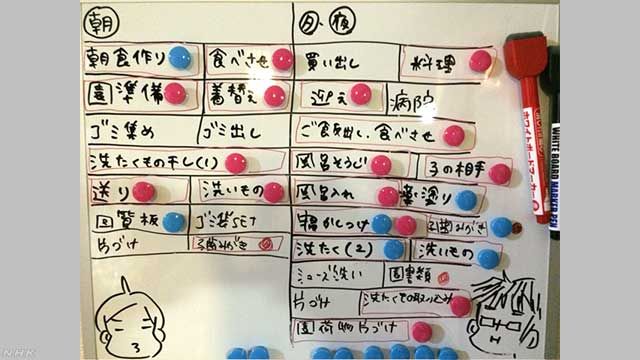 朝
朝食作り 食べさせ
園準備 着替え
ゴミ集め ゴミ出し
洗たくもの干し(1)
送り 洗いもの
回覧板 ゴミ袋SET
片づけ 子歯みがき
夕・夜
買い出し 料理
迎え 病院
ご飯出し、食べさせ
風呂そうじ 子の相手
風呂入れ 薬塗り
寝かしつけ 子歯みがき
洗たく(2) 洗いもの
シューズ洗い 園書類
片づけ 洗たくもの取り込み
園荷物片づけ
ホワイトボードマーカー
WHITE BOARD MARKER PEN
NHK